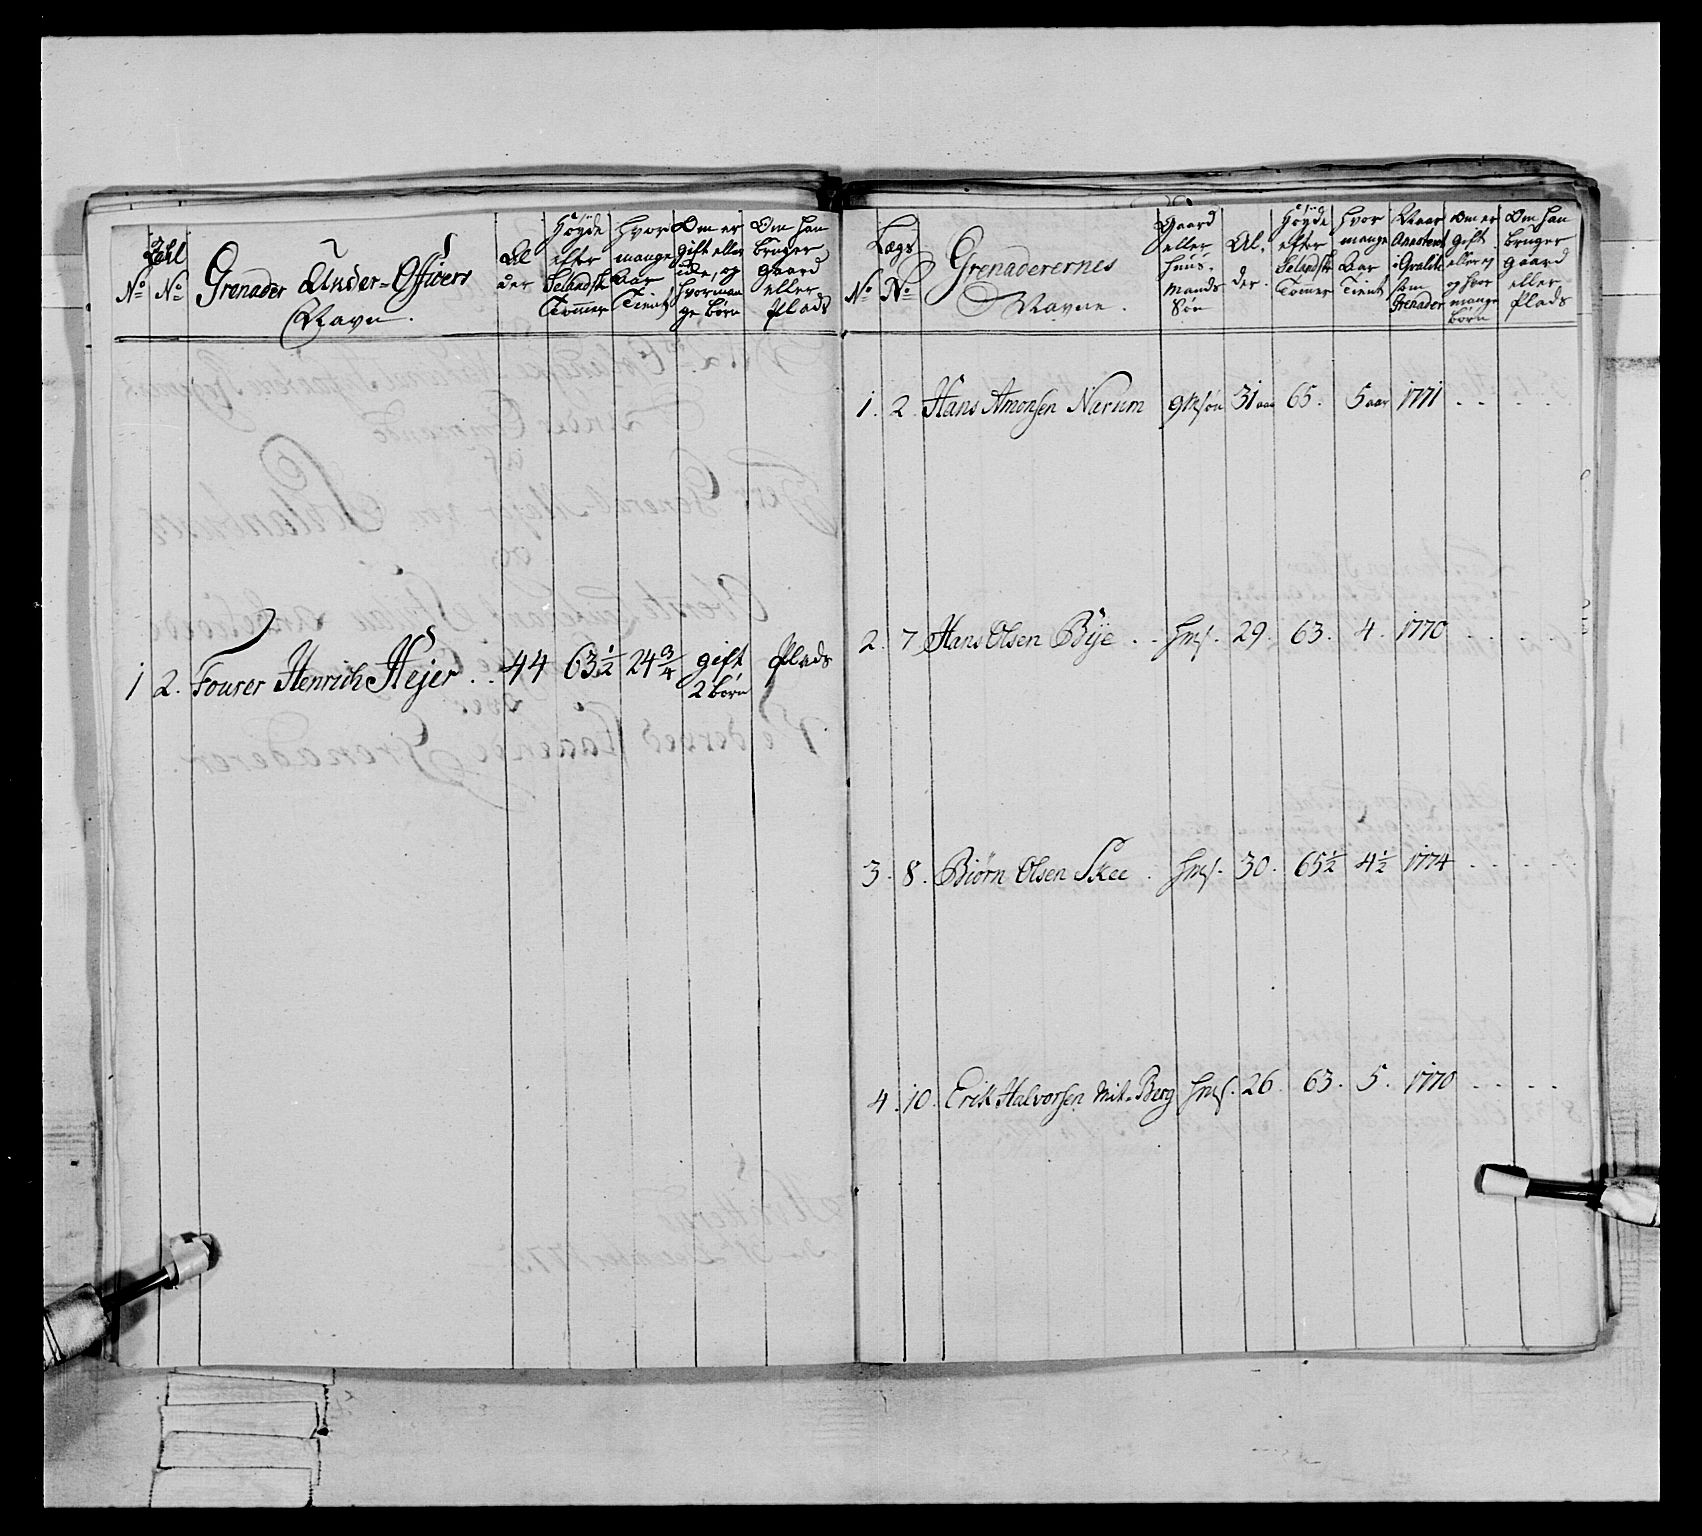 No
No
Grenader Under-Officers
Navn.
Al
der
Høyde
efter
Selandsk
Tommer
Hvor
mange
Aar
Tient
Om er
gift eller
ide, og
hvorman
ge børn
Om han
bruger
gaard
eller
Plads
1 2. Fourer Henrich Hejer . . 44 63½ 24¾ gift Plads
2 børn
No
Lægs
No
Grenaderernes
Navne.
Gaard
eller
Huus.
Mands
Søn
Al.
der.
Høyde
efter
Selandsk
Tommer
Hvor
mange
Aar
Tient
Naar
Annotert
som
Grenader
Om er
gift
eller ej
og hvor
mange
børn
Om han
bruger
gaard
eller
Plads
1. 2. Hans Amonsen Nærum 31 aar 65. 5 aar 1771 . . . .
2. 7 Hans Olsen Bÿe . . 29. 63. 4. 1770 . . . .
3. 8. Biørn Olsen Skee . 30. 65½ 4½ 1774 . . . .
4. 10. Erik Halvorsen Mit. Berg 26. 63. 5. 1770 . . . .